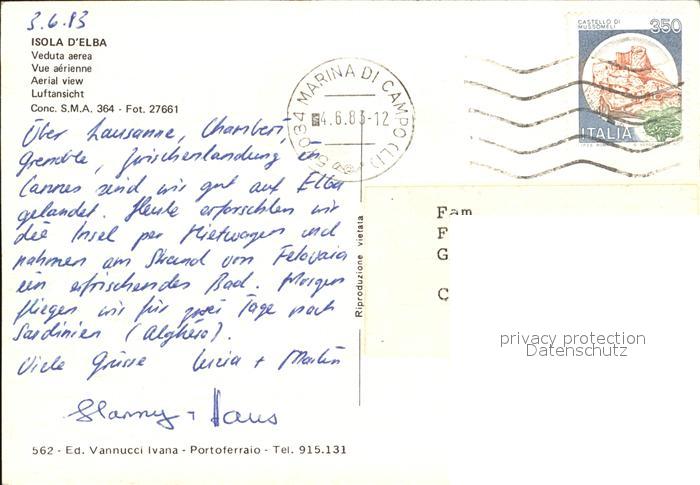 3.6.83
ISOLA D'ELBA
Veduta aerea
Vue aérienne
Aerial view
Luftansicht
Conc. S.M.A. 364 - Fot. 27661
Über Lausanne, Chamberi
Grenoble, Zwischenlandung in
Cannes sind wir gut auf Elba
gelandet. Heute erforschten wir
die Insel per Mietwagen und
nahmen am Strand von Fetovaia
ein erfrischendes Bad. Morgen
fliegen wir für zwei Tage nach
Sardinien (Alghero).
Viele Grüsse Lucia + Martin
+ Hans
562 - Ed. Vannucci Ivana - Portoferraio - Tel. 915.131
Riproduzione vietata
57034 MARINA DI CAMPO (LI)
4.6.83-12
CASTELLO DI
MUSSOMELI
350
ITALIA
Fam
F
G
C
privacy protection
Datenschutz